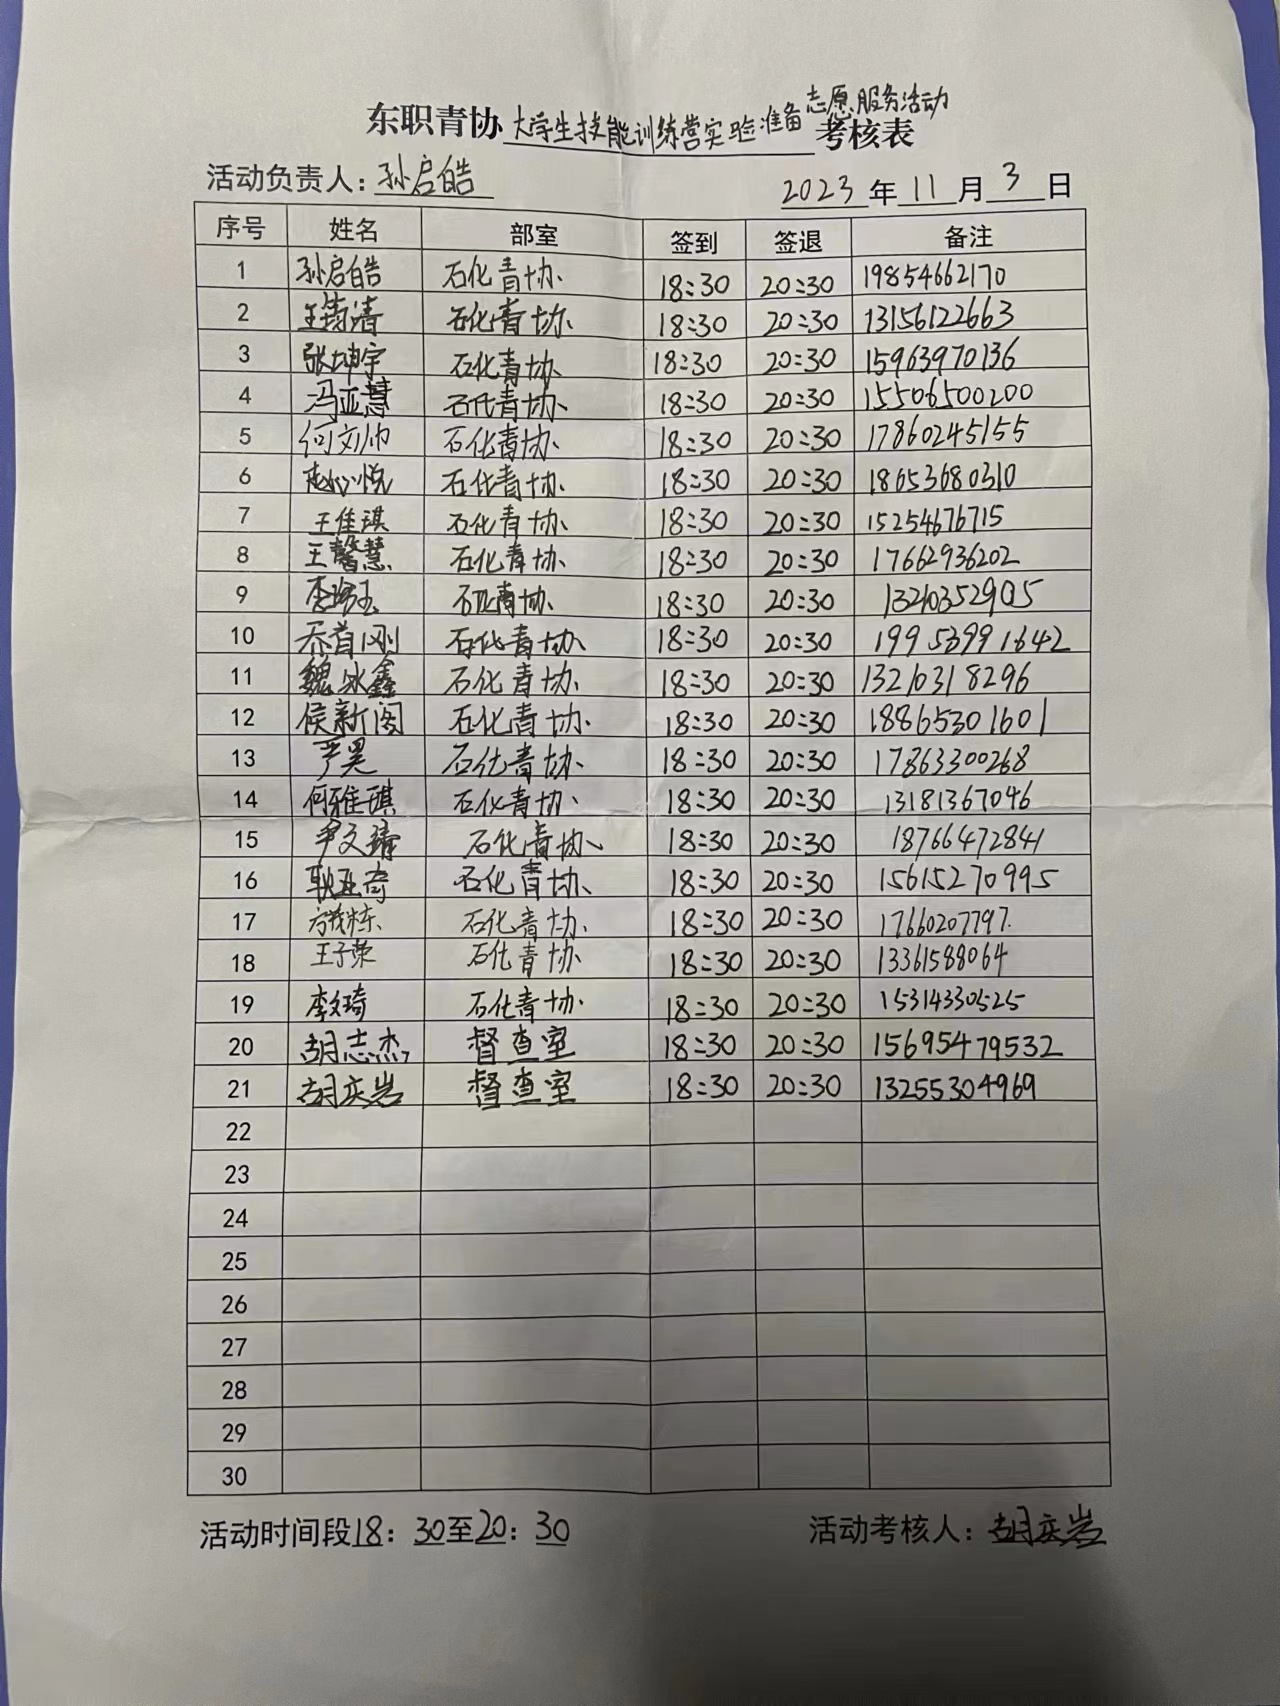 东职青协大学生技能训练营实验准备志愿服务活动考核表
活动负责人：孙启皓 2023年11月3日
序号 姓名 部室 签到 签退 备注
1 孙启皓 石化青协 18:30 20:30 19854662170
2 石化青协 18:30 20:30 13156122663
3 张坤宇 石化青协 18:30 20:30 15963970136
4 冯亚慧 石化青协 18:30 20:30 15506500200
5 何文帅 石化青协 18:30 20:30 17860245155
6 赵心悦 石化青协 18:30 20:30 18653680310
7 王佳琪 石化青协 18:30 20:30 15254676715
8 王馨慧 石化青协 18:30 20:30 17662936202
9 石化青协 18:30 20:30 13210352905
10 乔首刚 石化青协 18:30 20:30 19953991642
11 魏冰鑫 石化青协 18:30 20:30 13210318296
12 侯新阁 石化青协 18:30 20:30 18865301601
13 严昊 石化青协 18:30 20:30 17863300268
14 何雅琪 石化青协 18:30 20:30 13181367046
15 尹文靖 石化青协 18:30 20:30 18766472841
16 耿亚奇 石化青协 18:30 20:30 15615270995
17 石化青协 18:30 20:30 17660207797
18 王子荣 石化青协 18:30 20:30 13361588064
19 李文琦 石化青协 18:30 20:30 15314330525
20 胡志杰 督查室 18:30 20:30 15695479532
21 胡庆岩 督查室 18:30 20:30 13255304969
22
23
24
25
26
27
28
29
30
活动时间段18：30至20：30 活动考核人：胡庆岩